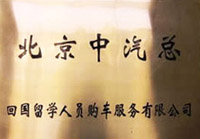 北京中汽总
回国留学人员购车服务有限公司